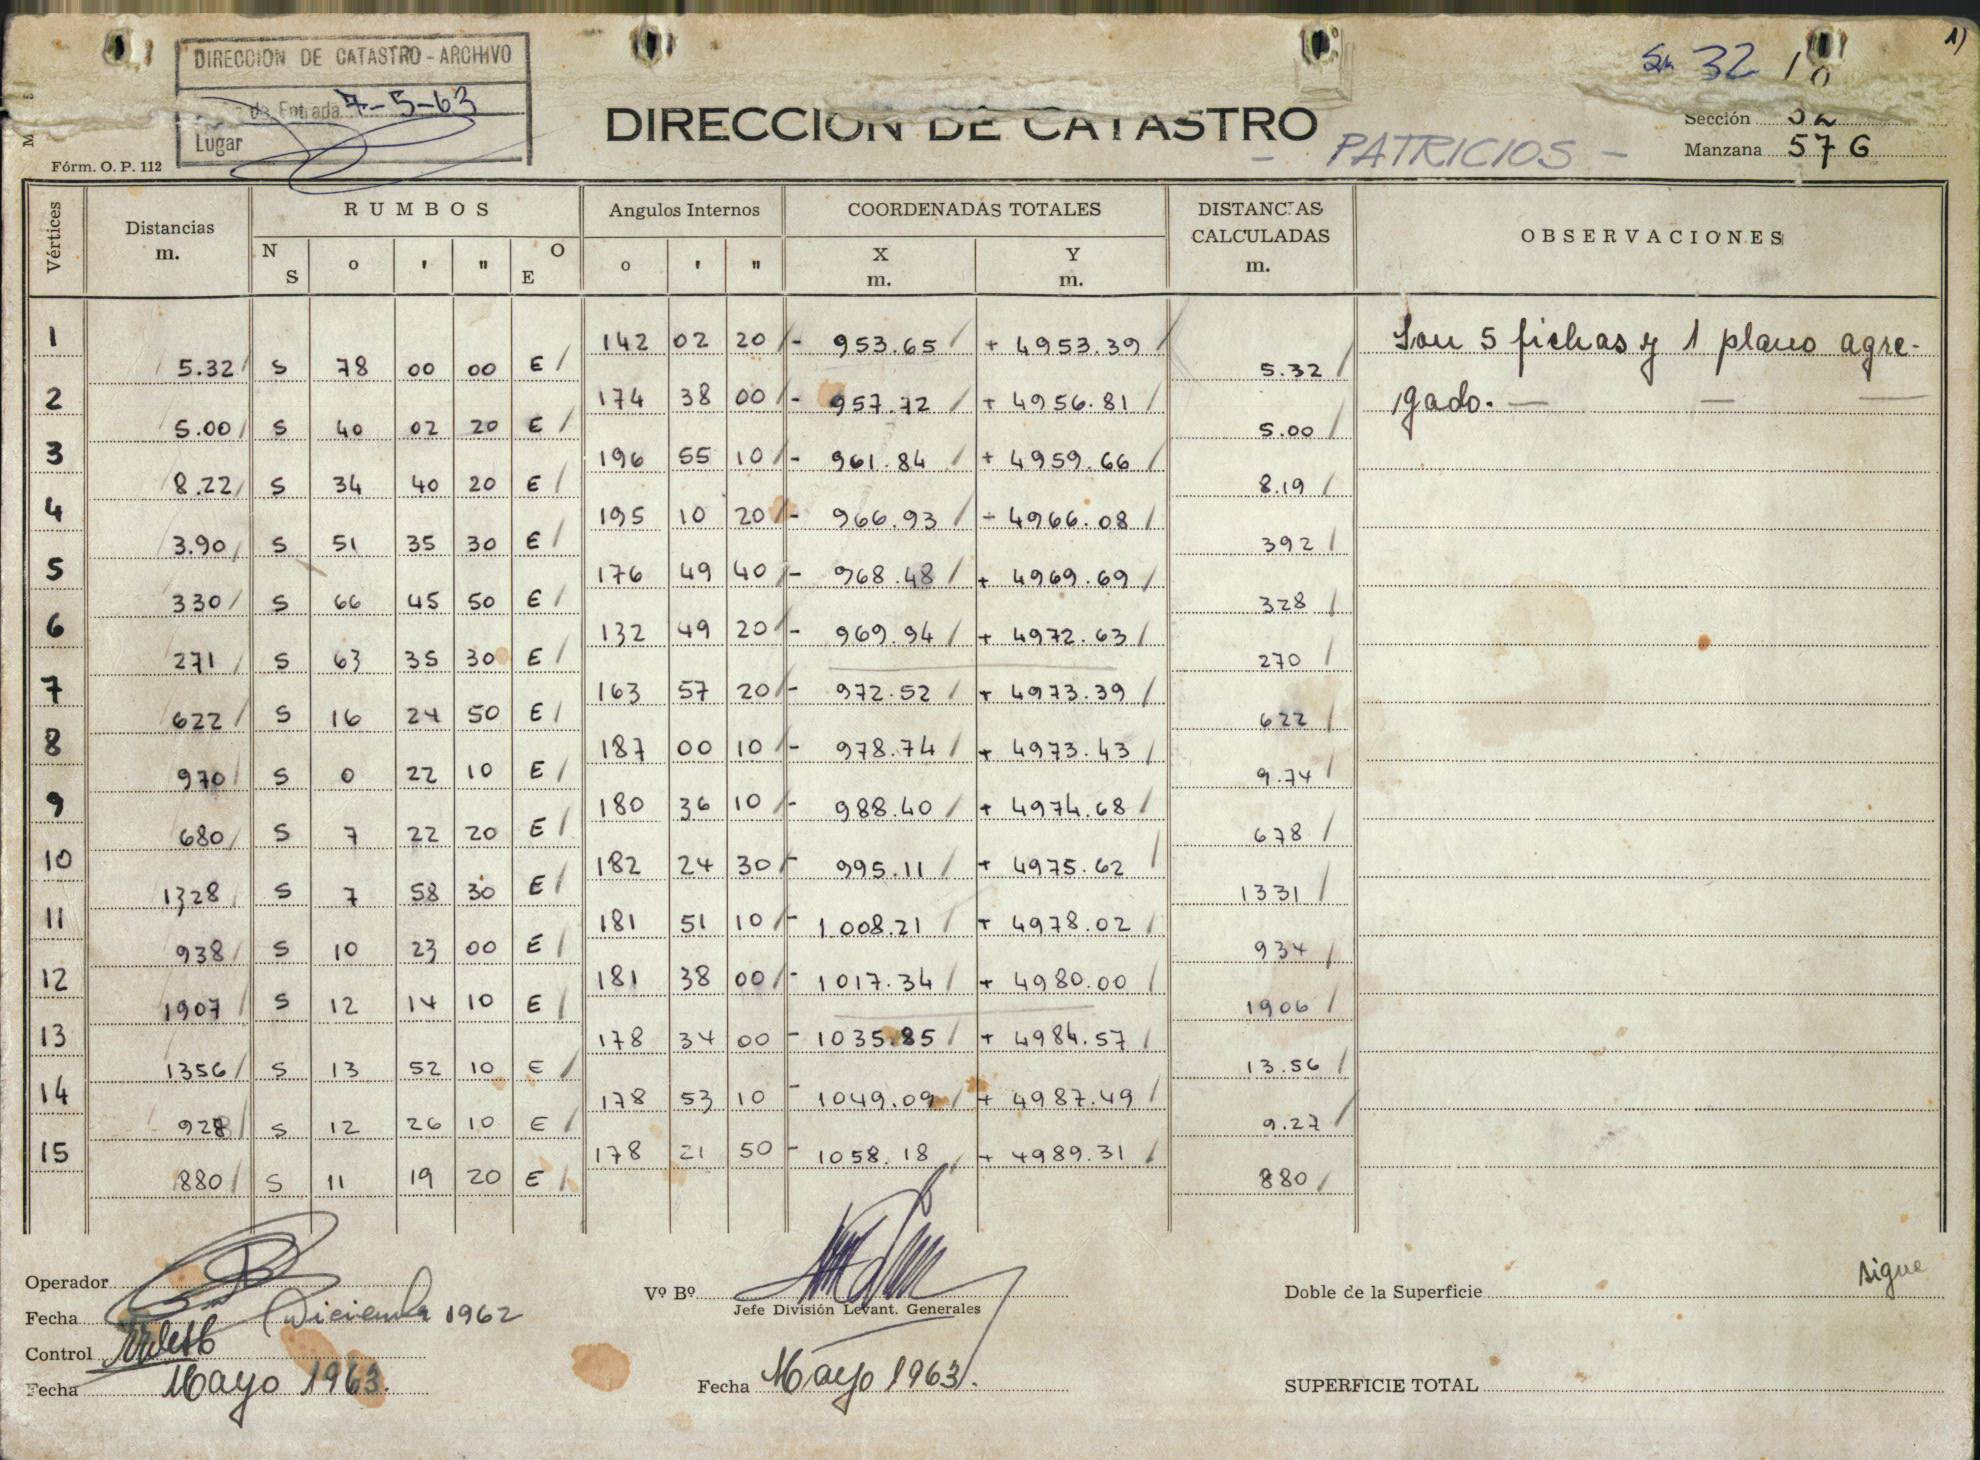 DIRECCION DE CATASTRO - ARCHIVO
de Entrada 7-5-63
Lugar
Sn 32
1)
DIRECCION DE CATASTRO
- PATRICIOS -
Sección 32
Manzana 57 G
Fórm. O. P. 112
Vértices
Distancias m.
RUMBOS
N S ° ' " O E
Angulos Internos
° ' "
COORDENADAS TOTALES
X m. Y m.
DISTANCIAS CALCULADAS m.
OBSERVACIONES
1 142 02 20 - 953.65 + 4953.39 Son 5 fichas y 1 plano agre-
5.32 S 78 00 00 E 5.32
2 174 38 00 - 957.72 + 4956.81 gado. — — —
5.00 S 40 02 20 E 5.00
3 196 55 10 - 961.84 + 4959.66
8.22 S 34 40 20 E 8.19
4 195 10 20 - 966.93 + 4966.08
3.90 S 51 35 30 E 392
5 176 49 40 - 968.48 + 4969.69
330 S 66 45 50 E 328
6 132 49 20 - 969.94 + 4972.63
271 S 63 35 30 E 270
7 163 57 20 - 972.52 + 4973.39
622 S 16 24 50 E 622
8 187 00 10 - 978.74 + 4973.43
970 S 0 22 10 E 9.74
9 180 36 10 - 988.40 + 4974.68
680 S 7 22 20 E 678
10 182 24 30 - 995.11 + 4975.62
1328 S 7 58 30 E 1331
11 181 51 10 - 1008.21 + 4978.02
938 S 10 23 00 E 934
12 181 38 00 - 1017.34 + 4980.00
1907 S 12 14 10 E 1906
13 178 34 00 - 1035.85 + 4984.57
1356 S 13 52 10 E 13.56
14 178 53 10 - 1049.09 + 4987.49
928 S 12 26 10 E 9.27
15 178 21 50 - 1058.18 + 4989.31
880 S 11 19 20 E 880
sigue
Operador
Fecha Diciembre 1962
Control
Fecha Mayo 1963.
Vº Bº
Jefe División Levant. Generales
Fecha Mayo 1963.
Doble de la Superficie
SUPERFICIE TOTAL